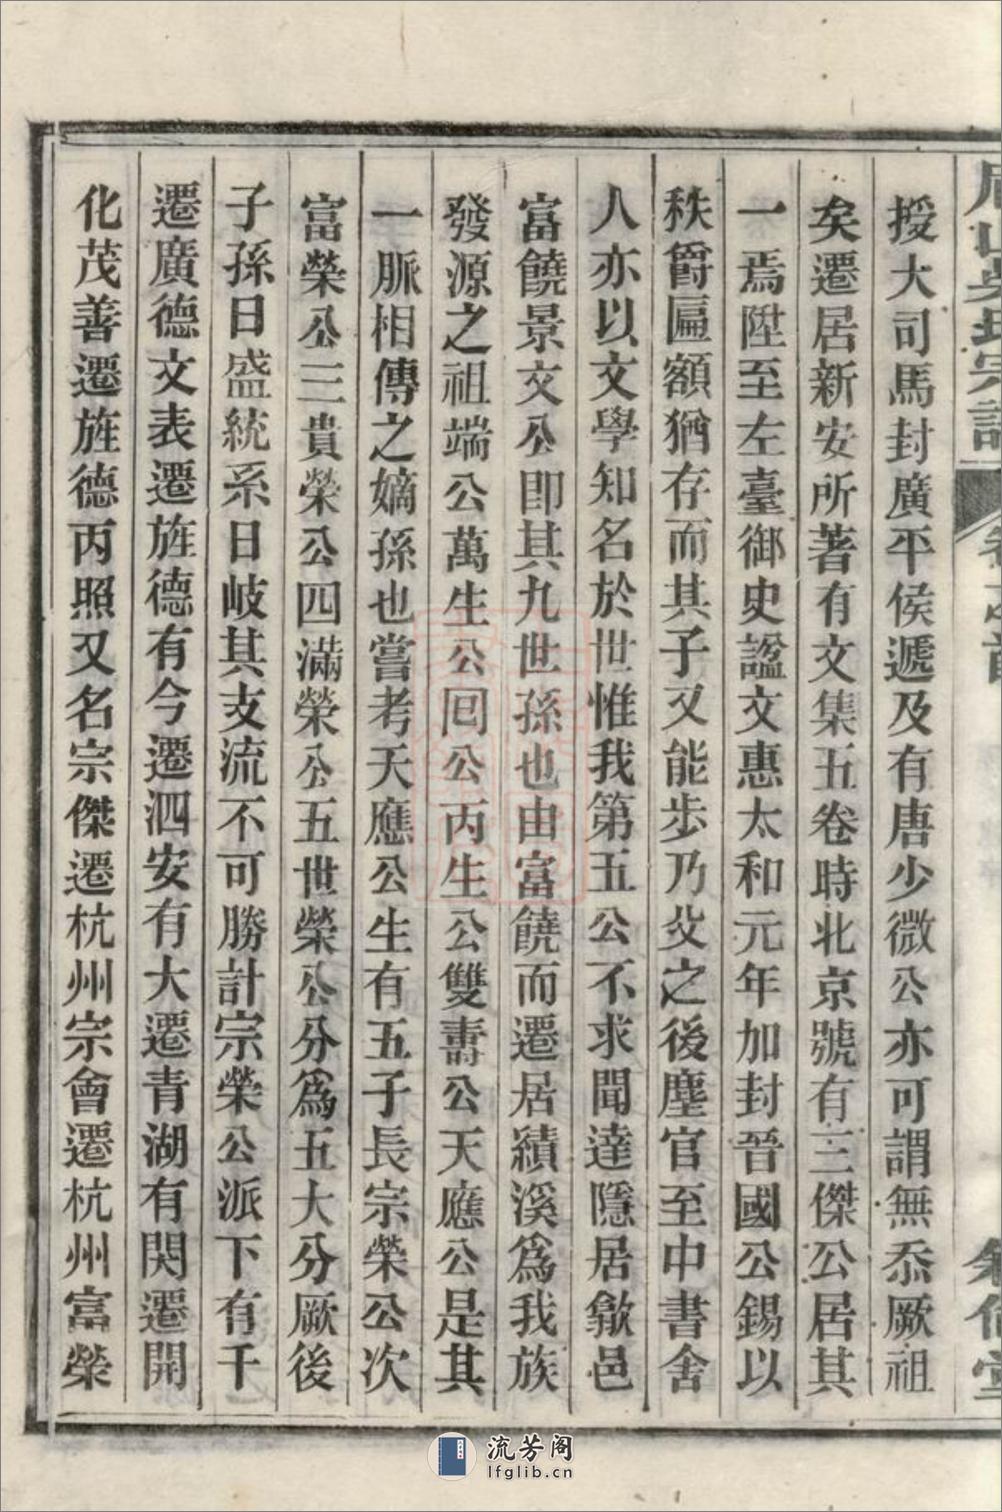 授大司馬封廣平侯遞及有唐少微公亦可謂無忝厥祖
矣遷居新安所著有文集五卷時北京號有三傑公居其
一焉陞至左臺御史諡文惠太和元年加封晉國公錫以
秩爵匾額猶存而其子又能步乃父之後塵官至中書舍
人亦以文學知名於世惟我第五公不求聞達隱居歙邑
富饒景文公即其九世孫也由富饒而遷居績溪爲我族
發源之祖端公萬生公囘公丙生公雙壽公天應公是其
一脈相傳之嫡孫也嘗考天應公生有五子長宗榮公次
富榮公三貴榮公四滿榮公五世榮公分爲五大分厥後
子孫日盛統系日岐其支流不可勝計宗榮公派下有千
遷廣德文表遷旌德有今遷泗安有大遷青湖有閔遷開
化茂善遷旌德丙照又名宗傑遷杭州宗會遷杭州富榮
流芳阁
lfglib.cn